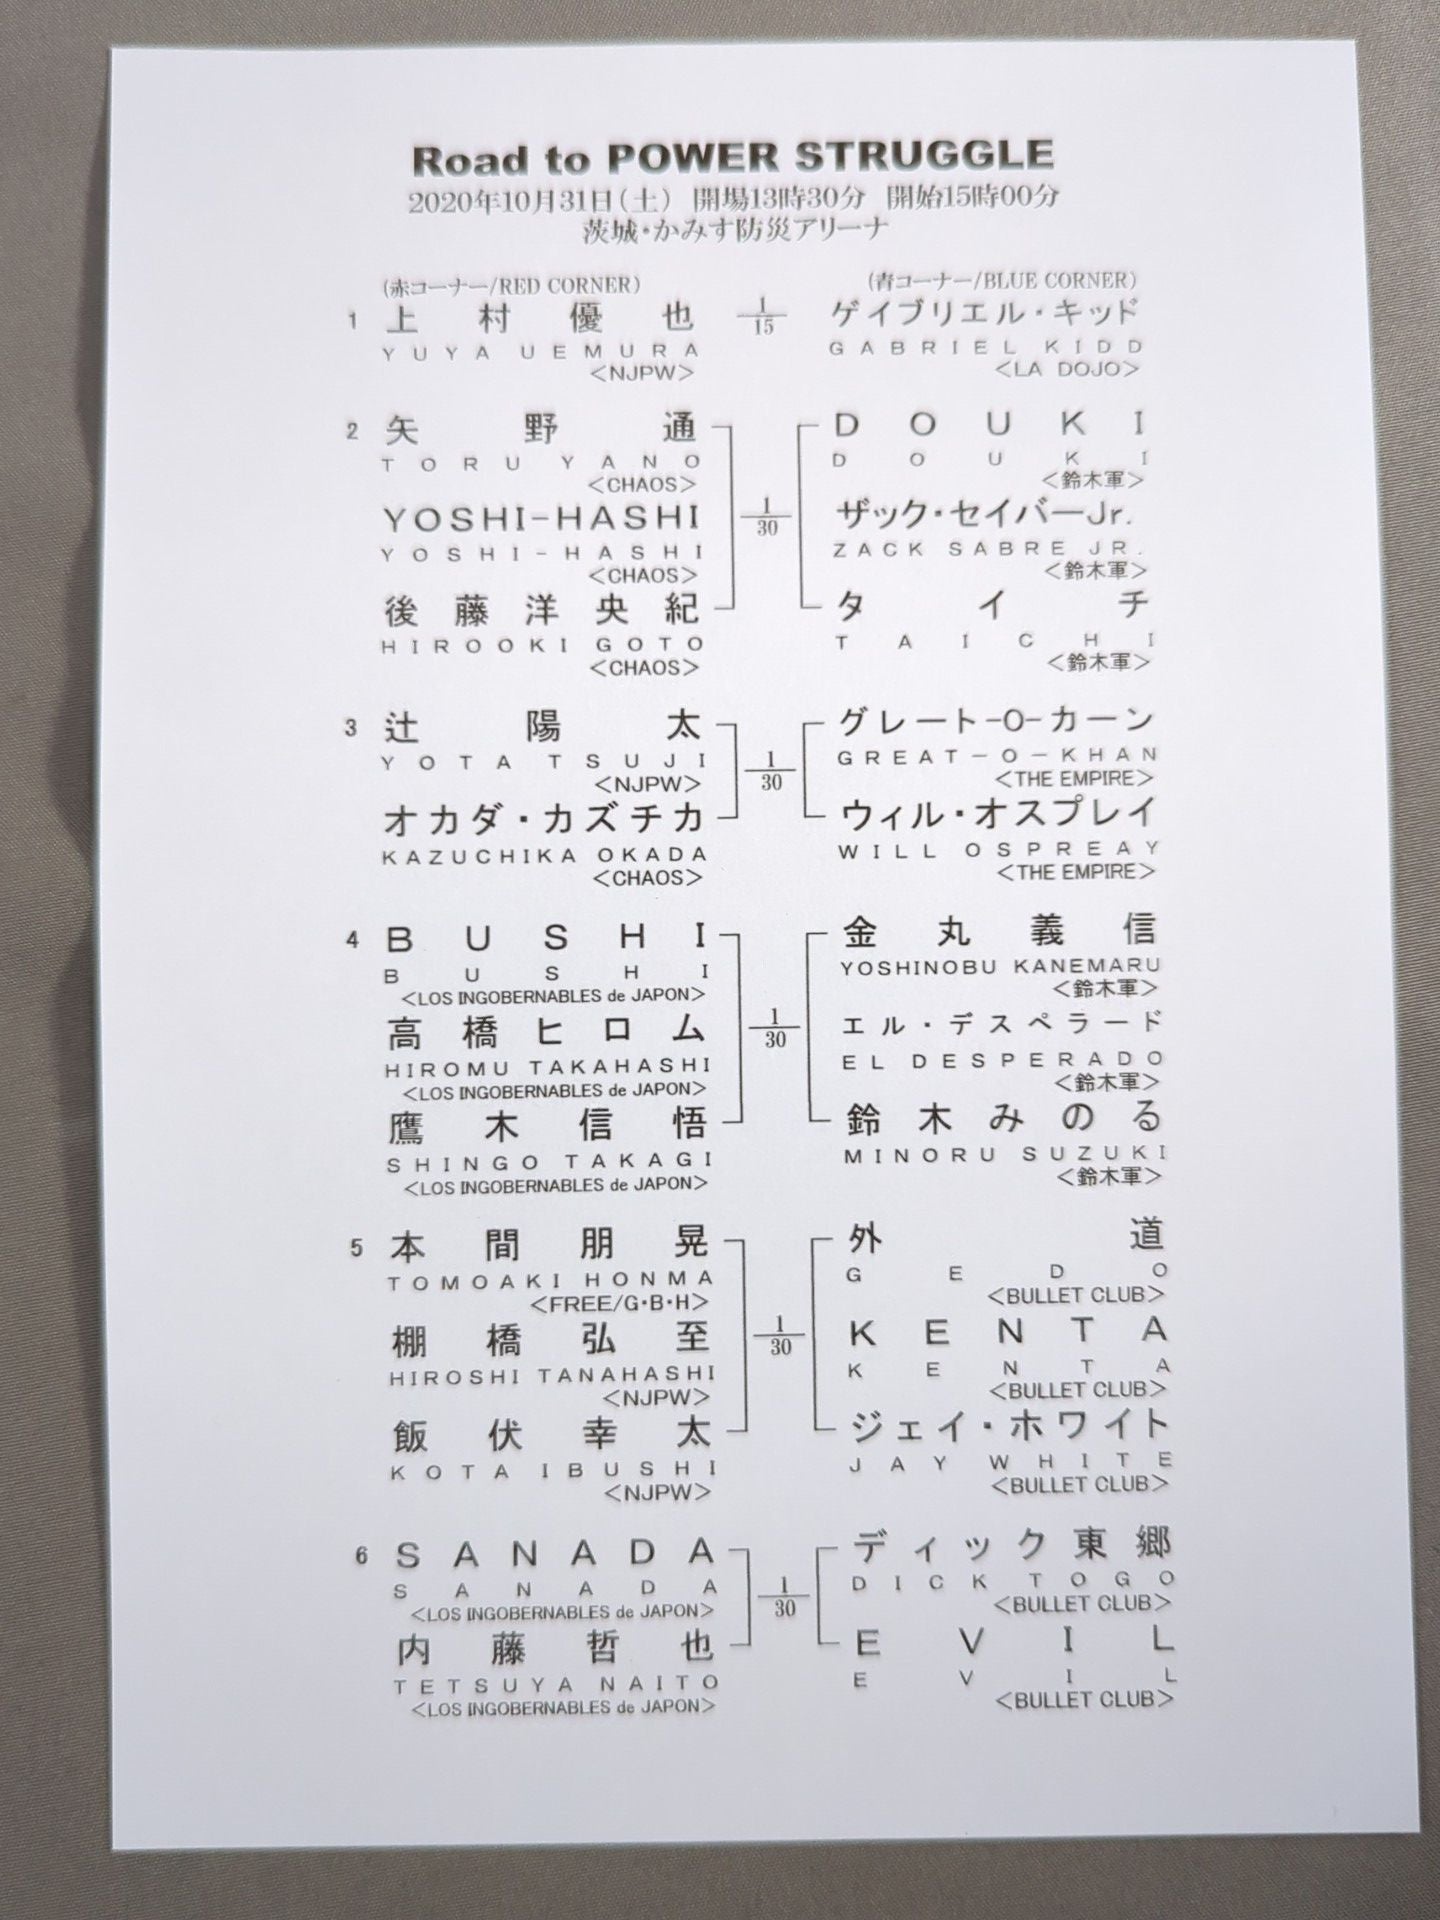 Road to POWER STRUGGLE
2020年10月31日(土) 開場13時30分 開始15時00分
茨城・かみす防災アリーナ
(赤コーナー/RED CORNER) (青コーナー/BLUE CORNER)
1 上村優也 1/15 ゲイブリエル・キッド
YUYA UEMURA GABRIEL KIDD
<NJPW> <LA DOJO>
2 矢野通 DOUKI
TORU YANO DOUKI
<CHAOS> <鈴木軍>
YOSHI-HASHI 1/30 ザック・セイバーJr.
YOSHI-HASHI ZACK SABRE JR.
<CHAOS> <鈴木軍>
後藤洋央紀 タイチ
HIROOKI GOTO TAICHI
<CHAOS> <鈴木軍>
3 辻陽太 グレート-O-カーン
YOTA TSUJI GREAT-O-KHAN
<NJPW> 1/30 <THE EMPIRE>
オカダ・カズチカ ウィル・オスプレイ
KAZUCHIKA OKADA WILL OSPREAY
<CHAOS> <THE EMPIRE>
4 BUSHI 金丸義信
BUSHI YOSHINOBU KANEMARU
<LOS INGOBERNABLES de JAPON> <鈴木軍>
高橋ヒロム 1/30 エル・デスペラード
HIROMU TAKAHASHI EL DESPERADO
<LOS INGOBERNABLES de JAPON> <鈴木軍>
鷹木信悟 鈴木みのる
SHINGO TAKAGI MINORU SUZUKI
<LOS INGOBERNABLES de JAPON> <鈴木軍>
5 本間朋晃 外道
TOMOAKI HONMA GEDO
<FREE/G・B・H> <BULLET CLUB>
棚橋弘至 1/30 KENTA
HIROSHI TANAHASHI KENTA
<NJPW> <BULLET CLUB>
飯伏幸太 ジェイ・ホワイト
KOTA IBUSHI JAY WHITE
<NJPW> <BULLET CLUB>
6 SANADA ディック東郷
SANADA DICK TOGO
<LOS INGOBERNABLES de JAPON> 1/30 <BULLET CLUB>
内藤哲也 EVIL
TETSUYA NAITO EVIL
<LOS INGOBERNABLES de JAPON> <BULLET CLUB>